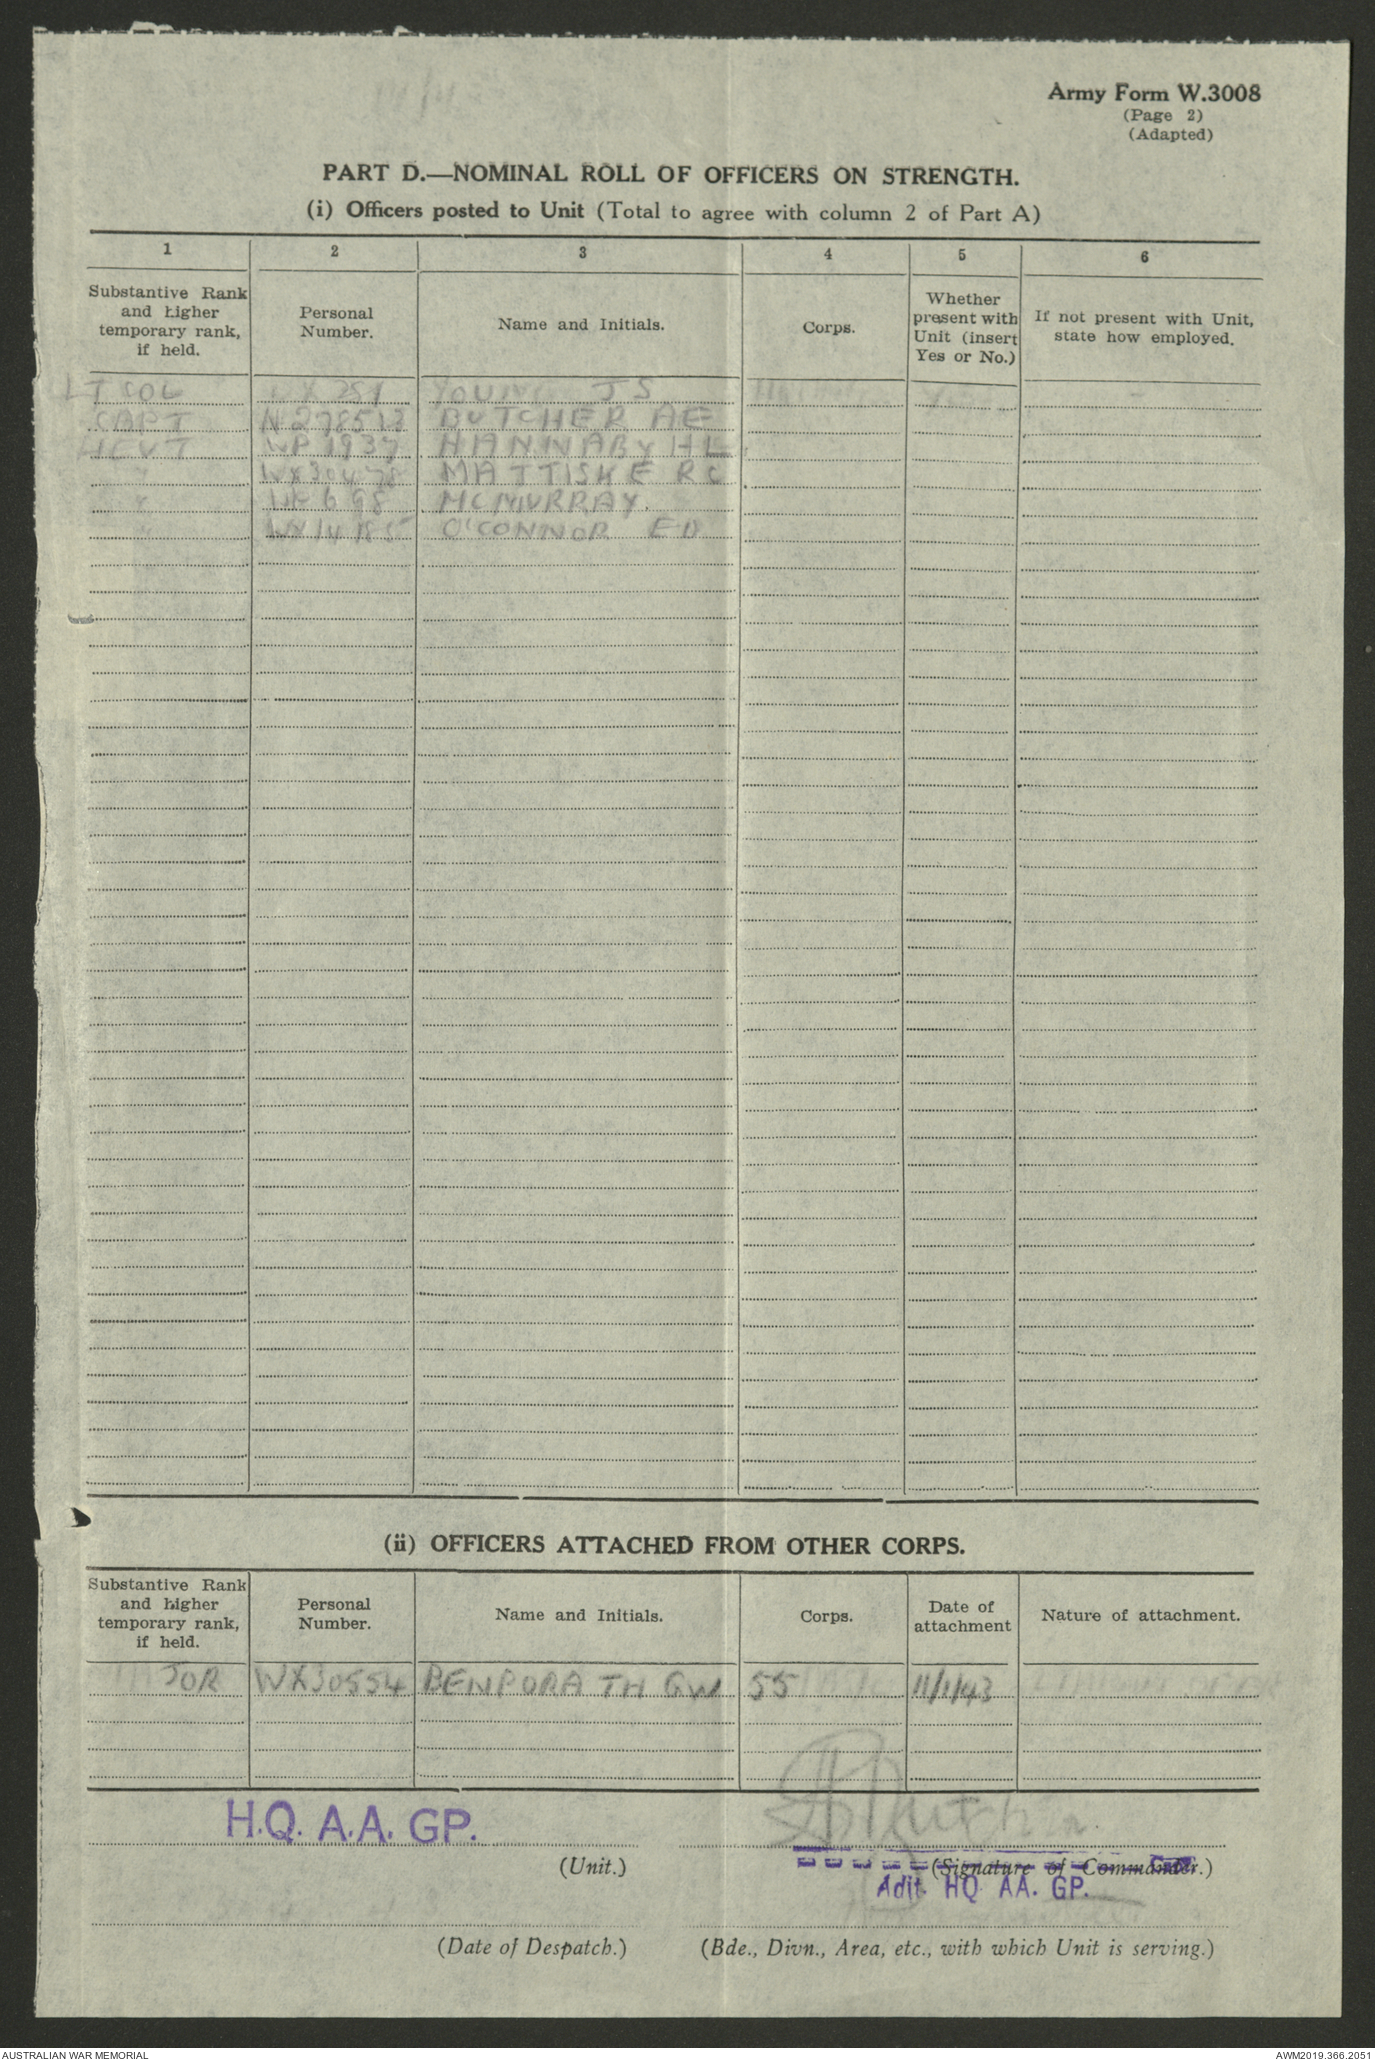 Army Form W.3008
(Page 2)
(Adapted)
PART D.—NOMINAL ROLL OF OFFICERS ON STRENGTH.
(i) Officers posted to Unit (Total to agree with column 2 of Part A)
1 2 3 4 5 6
Substantive Rank and higher temporary rank, if held.
Personal Number.
Name and Initials.
Corps.
Whether present with Unit (insert Yes or No.)
If not present with Unit, state how employed.
LT COL YOUNG J S
CAPT N278513 BUTCHER AE
LEUT WP1937 HANNABY HL
" WX30478 MATTISKE RC
" 698 MCMURRAY.
" WX14185 O'CONNOR ED
(ii) OFFICERS ATTACHED FROM OTHER CORPS.
Substantive Rank and higher temporary rank, if held.
Personal Number.
Name and Initials.
Corps.
Date of attachment
Nature of attachment.
JOR WX30554 BENPORATH GW 55 11/1/43
H.Q. A.A. GP.
(Unit.)
(Signature of Commander.)
Adjt. HQ AA. GP.
(Date of Despatch.)
(Bde., Divn., Area, etc., with which Unit is serving.)
AUSTRALIAN WAR MEMORIAL
AWM2019.366.2051